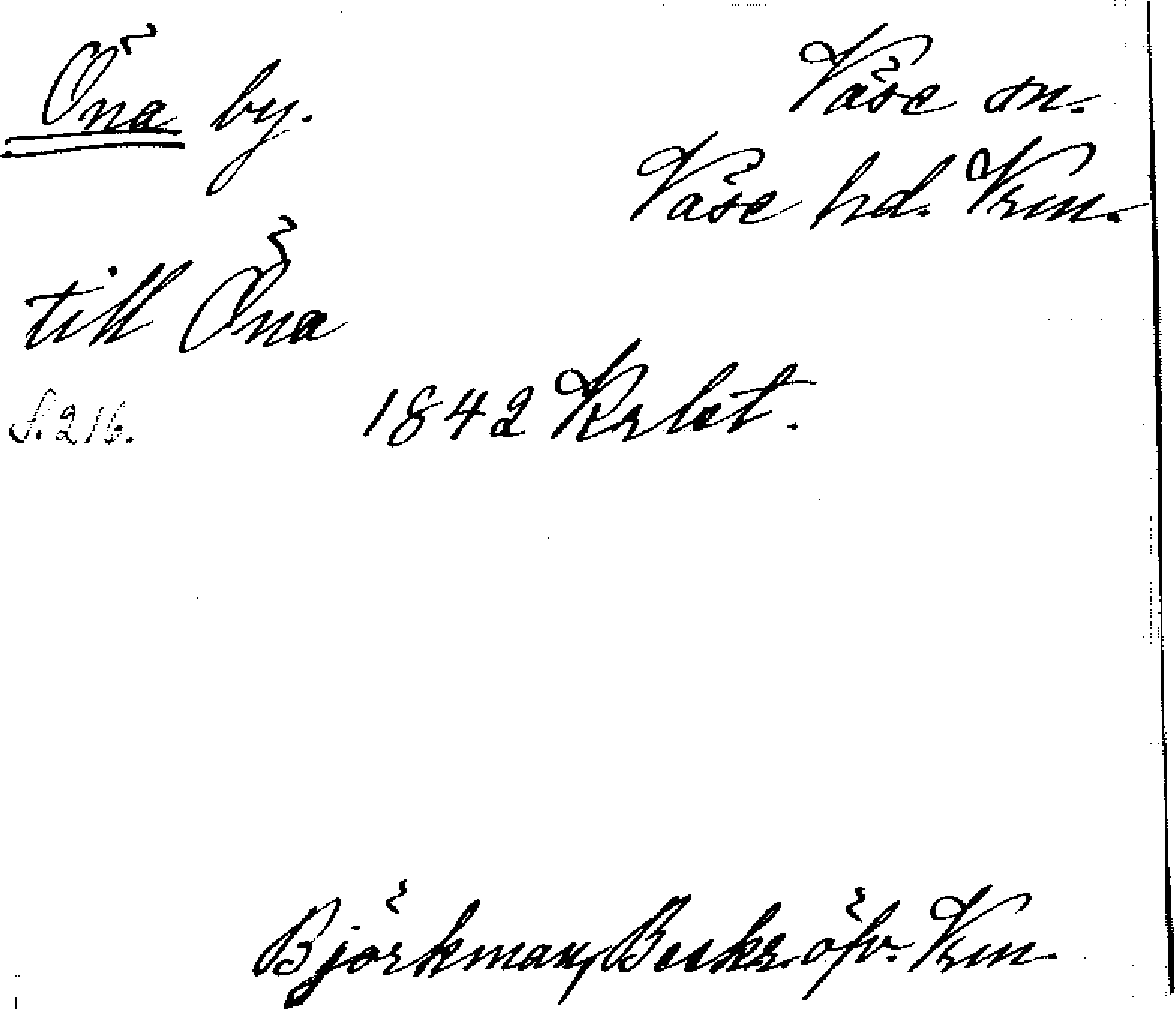 Öna by.
Väse sn.
Väse hd. Vrm.
till Öna
S. 216.
1842 Krbet.
Björkman, Beskr. öfv. Vrm.